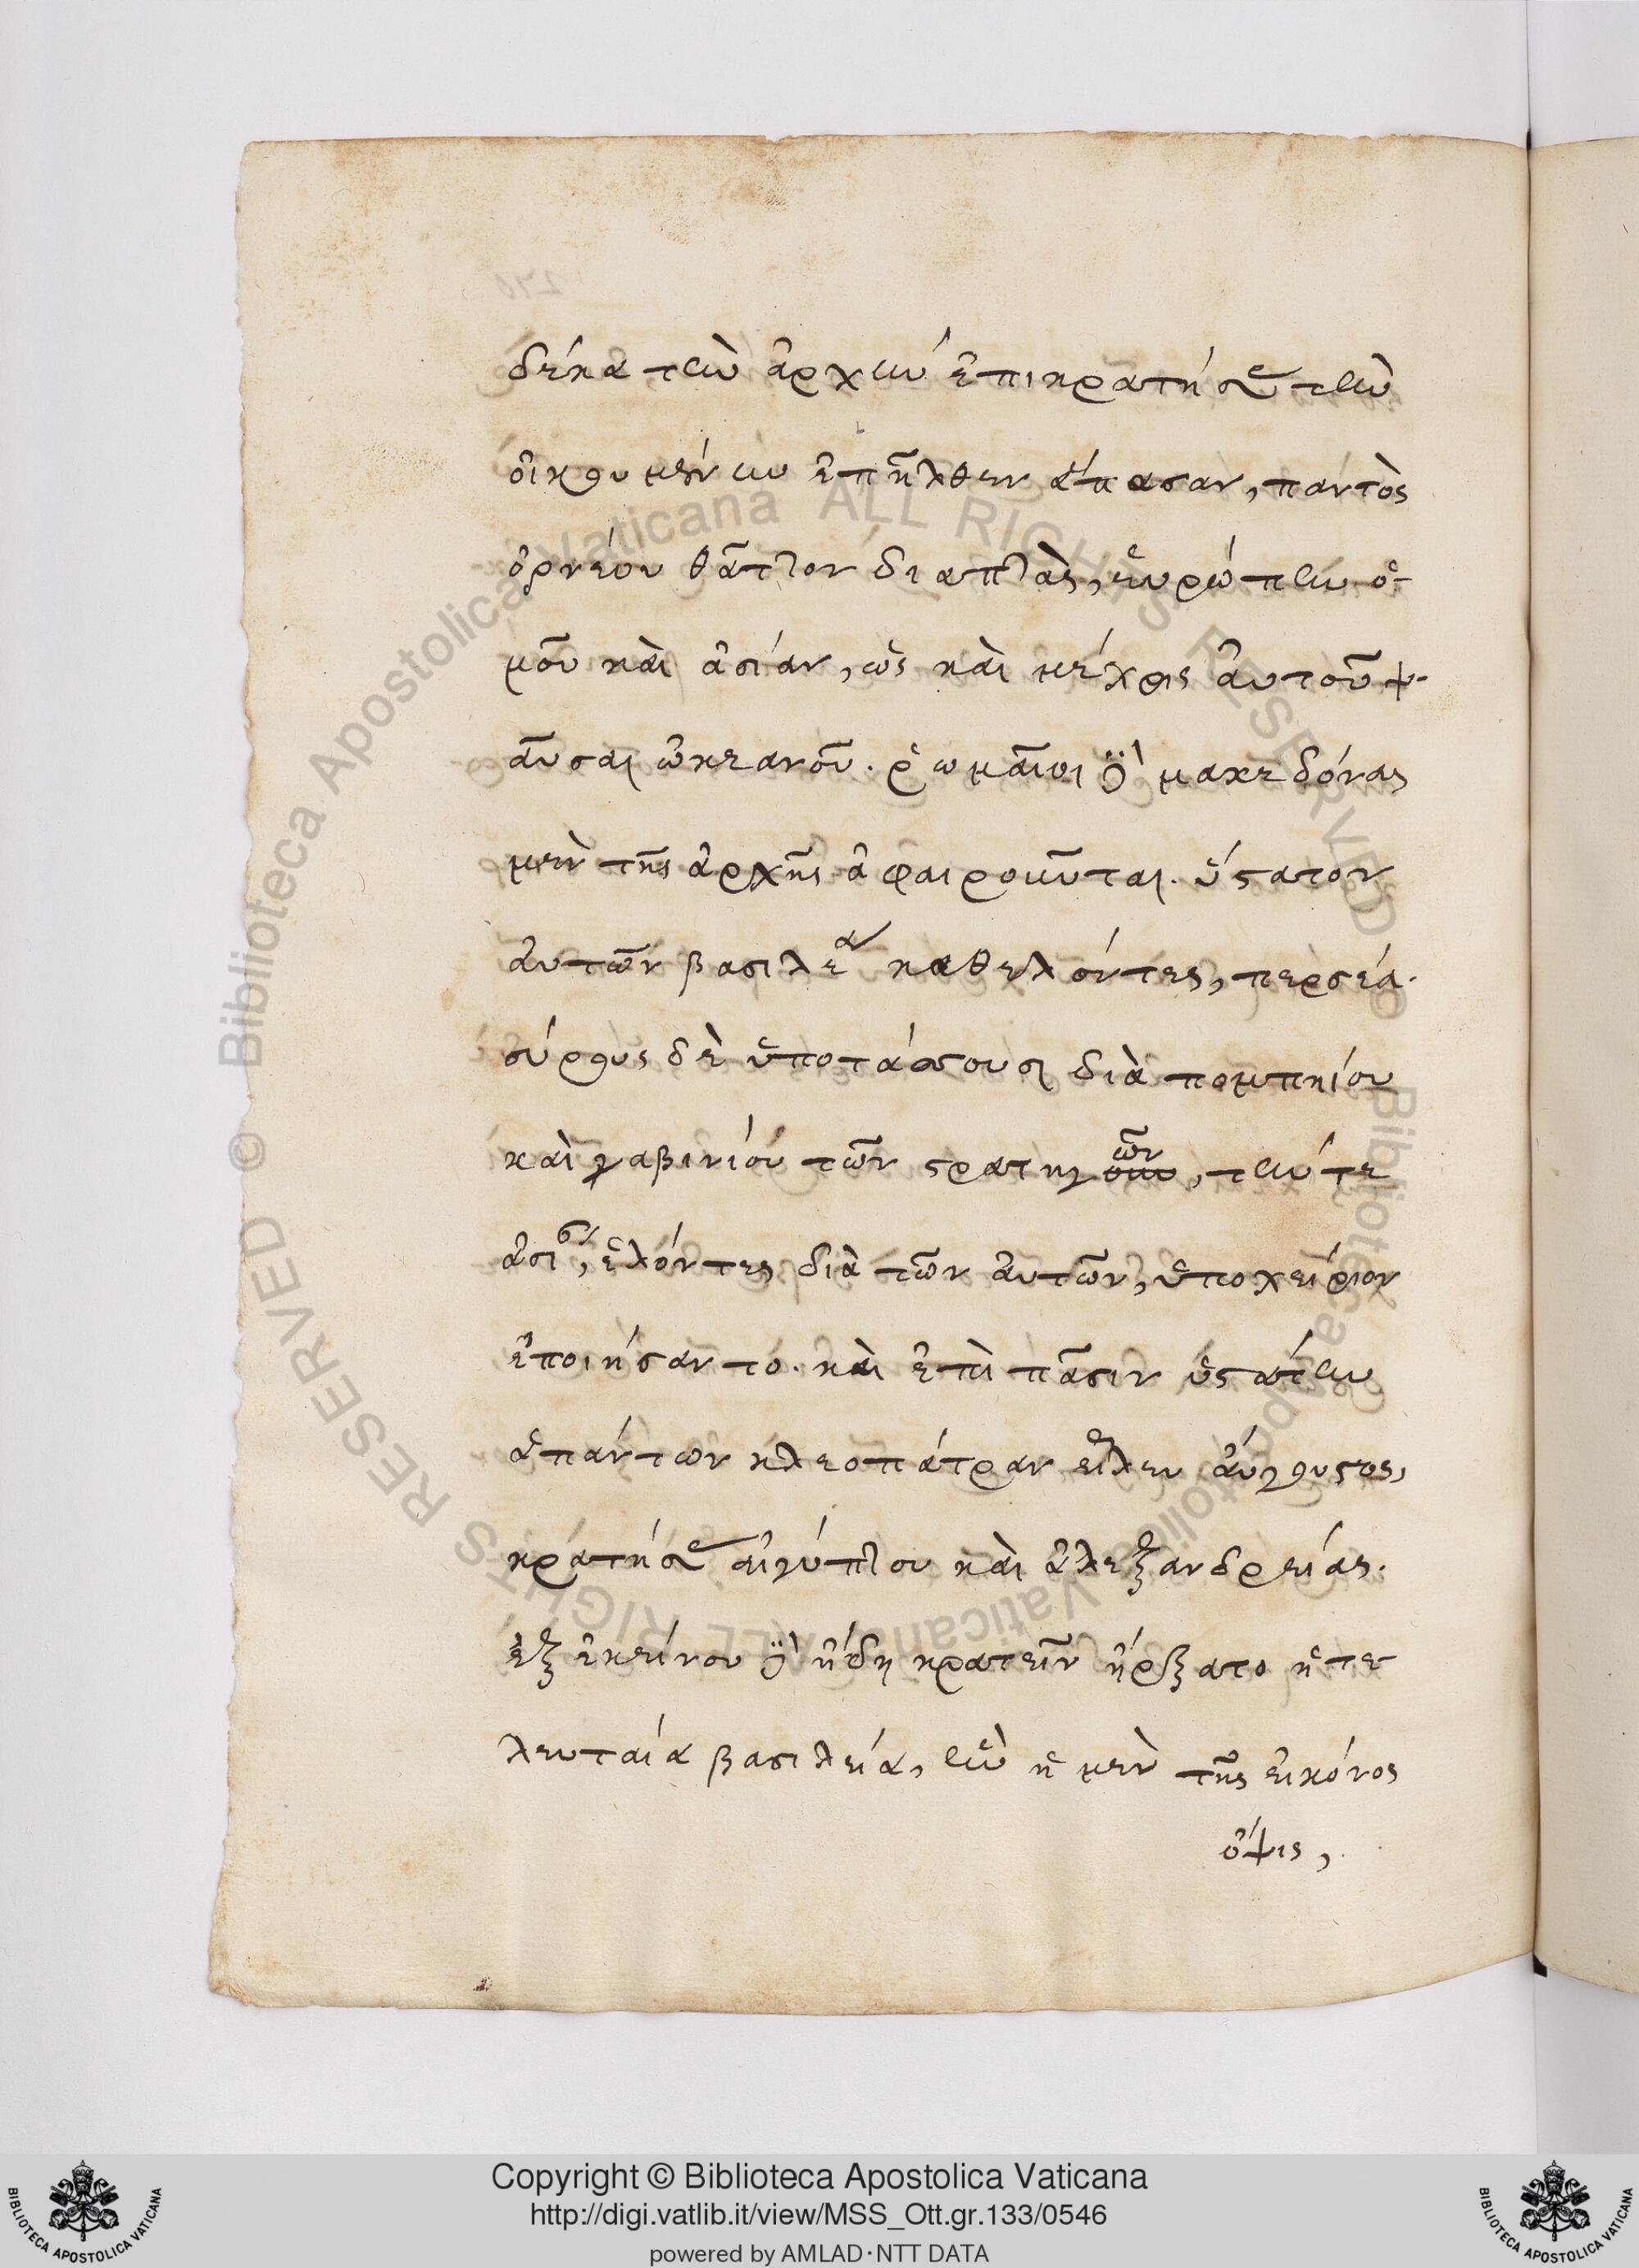 δέκα τὴν ἀρχὴν ἐπικρατήσας τὴν
οἰκουμένην ἐπῆλθεν ἅπασαν, παντὸς
ὀρνέου θᾶττον διαπτὰς, εὐρώπην ὁ-
μοῦ καὶ ἀσίαν, ὡς καὶ μέχρις αὐτοῦ ψ-
αῦσαι ὠκεανοῦ. ῥωμαῖοι δὲ μακεδόνας
μὲν τῆς ἀρχῆς ἀφαιροῦνται. ὕστατον
αὐτῶν βασιλέα καθελόντες, περσέα.
σύρους δὲ ὑποτάσσουσι διὰ πομπηίου
καὶ γαβινίου τῶν στρατηγῶν, τήν τε
ἀσίαν, ἑλόντες διὰ τῶν αὐτῶν, ὑποχείριον
ἐποιήσαντο. καὶ ἐπὶ πᾶσιν ὑστάτην
ἁπάντων κλεοπάτραν εἷλεν αὔγουστος,
κρατήσας αἰγύπτου καὶ ἀλεξανδρείας.
ἐξ ἐκείνου δὲ ἤδη κρατεῖν ἤρξατο ἡ τε-
λευταία βασιλεία, ἣν ἡ μὲν τῆς εἰκόνος
ὄψις,
Copyright © Biblioteca Apostolica Vaticana
http://digi.vatlib.it/view/MSS_Ott.gr.133/0546
powered by AMLAD·NTT DATA
BIBLIOTECA APOSTOLICA VATICANA
BIBLIOTECA APOSTOLICA VATICANA
© Biblioteca Apostolica Vaticana ALL RIGHTS RESERVED
© Biblioteca Apostolica Vaticana ALL RIGHTS RESERVED